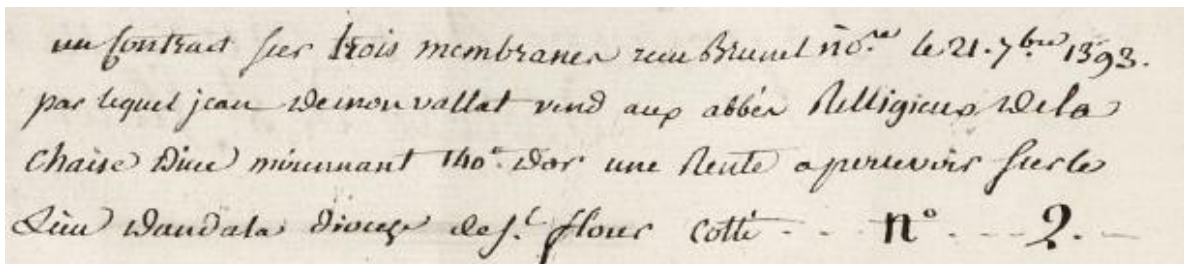 un Contract sur trois membranes receu Brunel no.re le 21. 7.bre 1393.
par lequel jean de monvallat vend aux abbés Religieux de la
chaise dieu mieunant 140.e dor une Rente a percevoir sur le
Lieu dandala dioceze de s.t flour cotté - - - n.o - - - 2. -